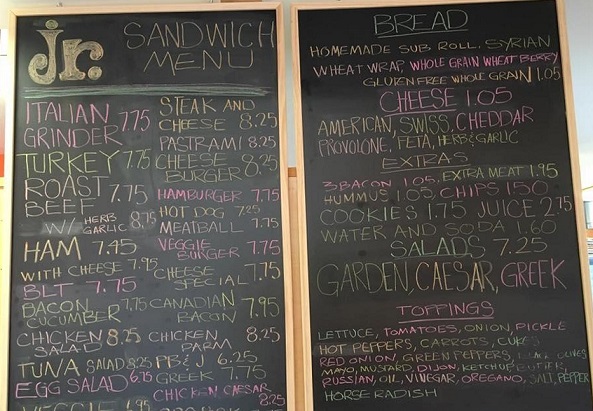 jr.
SANDWICH
MENU
ITALIAN
GRINDER 7.75
TURKEY 7.75
ROAST
BEEF 7.75
W/ HERB
GARLIC 8.75
HAM 7.45
WITH CHEESE 7.95
BLT 7.75
BACON
CUCUMBER 7.75
CHICKEN 8.25
SALAD
TUNA SALAD 8.25
EGG SALAD 6.75
VEGGIE
STEAK AND
CHEESE 8.25
PASTRAMI 8.25
CHEESE
BURGER 8.25
HAMBURGER 7.75
HOT DOG 7.25
MEATBALL 7.75
VEGGIE
BURGER 7.75
CHEESE
SPECIAL 7.75
CANADIAN
BACON 7.95
CHICKEN 8.25
PARM
PB & J 6.25
GREEK 7.75
CHICKEN CAESAR
8.25
BREAD
HOMEMADE SUB ROLL, SYRIAN
WHEAT WRAP, WHOLE GRAIN WHEAT BERRY
GLUTEN FREE WHOLE GRAIN 1.05
CHEESE 1.05
AMERICAN, SWISS, CHEDDAR
PROVOLONE, FETA, HERB & GARLIC
EXTRAS
3 BACON 1.05, EXTRA MEAT 1.95
HUMMUS 1.05 CHIPS 1.50
COOKIES 1.75 JUICE 2.75
WATER AND SODA 1.60
SALADS 7.25
GARDEN, CAESAR, GREEK
TOPPINGS
LETTUCE, TOMATOES, ONION, PICKLE
HOT PEPPERS, CARROTS, CUKES
RED ONION, GREEN PEPPERS, BLACK OLIVES
MAYO, MUSTARD, DIJON, KETCHUP, BUTTER,
RUSSIAN, OIL, VINEGAR, OREGANO, SALT, PEPPER
HORSE RADISH